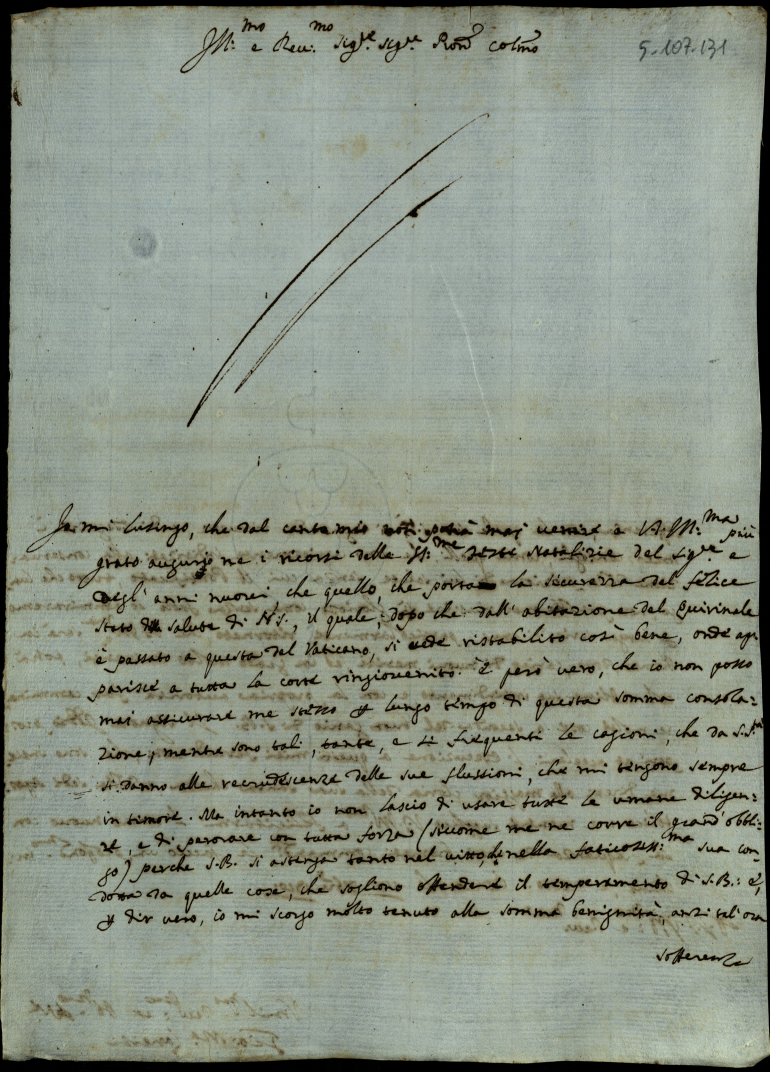 Ill:mo e Reu:mo Sig:re Sig:re Pron̄ Colmo
5.107.131
Io mi lusingo, che dal canto mio non potrà maj uenire a V.S. Ill:ma più
grato augurio ne i ricorsi delle SS:me Feste Natalizie del Sig:re e
degl'anni nuoui che quello, che porta la sicurezza del felice
stato di salute di N.S., il quale, dopo che dall'abitazione del Quirinale
è passato a questa del Vaticano, si uede ristabilito così bene, onde ap
parisce a tutta la corte ringiouenito. È però vero, che io non posso
maj assicurare me stesso p lungo tempo di questa somma consola=
zione, mentre sono tali, tante, e sì frequenti le cagioni, che da S.S.tà
si danno alle recrudescenze delle sue flussioni, che mi tengono sempre
in timore. Ma intanto io non lascio di usare tutte le umane diligen=
ze, e di perorare con tutta forza (siccome me ne corre il grand'obbli=
go) perche S.B. si astenga tanto nel uitto, che nella faticosiss:ma sua con=
dotta da quelle cose, che sogliono offendere il temperamento di S.B.: e,
p dir uero, io mi scorgo molto tenuto alla somma benignità, anzi tal'ora
sofferenza